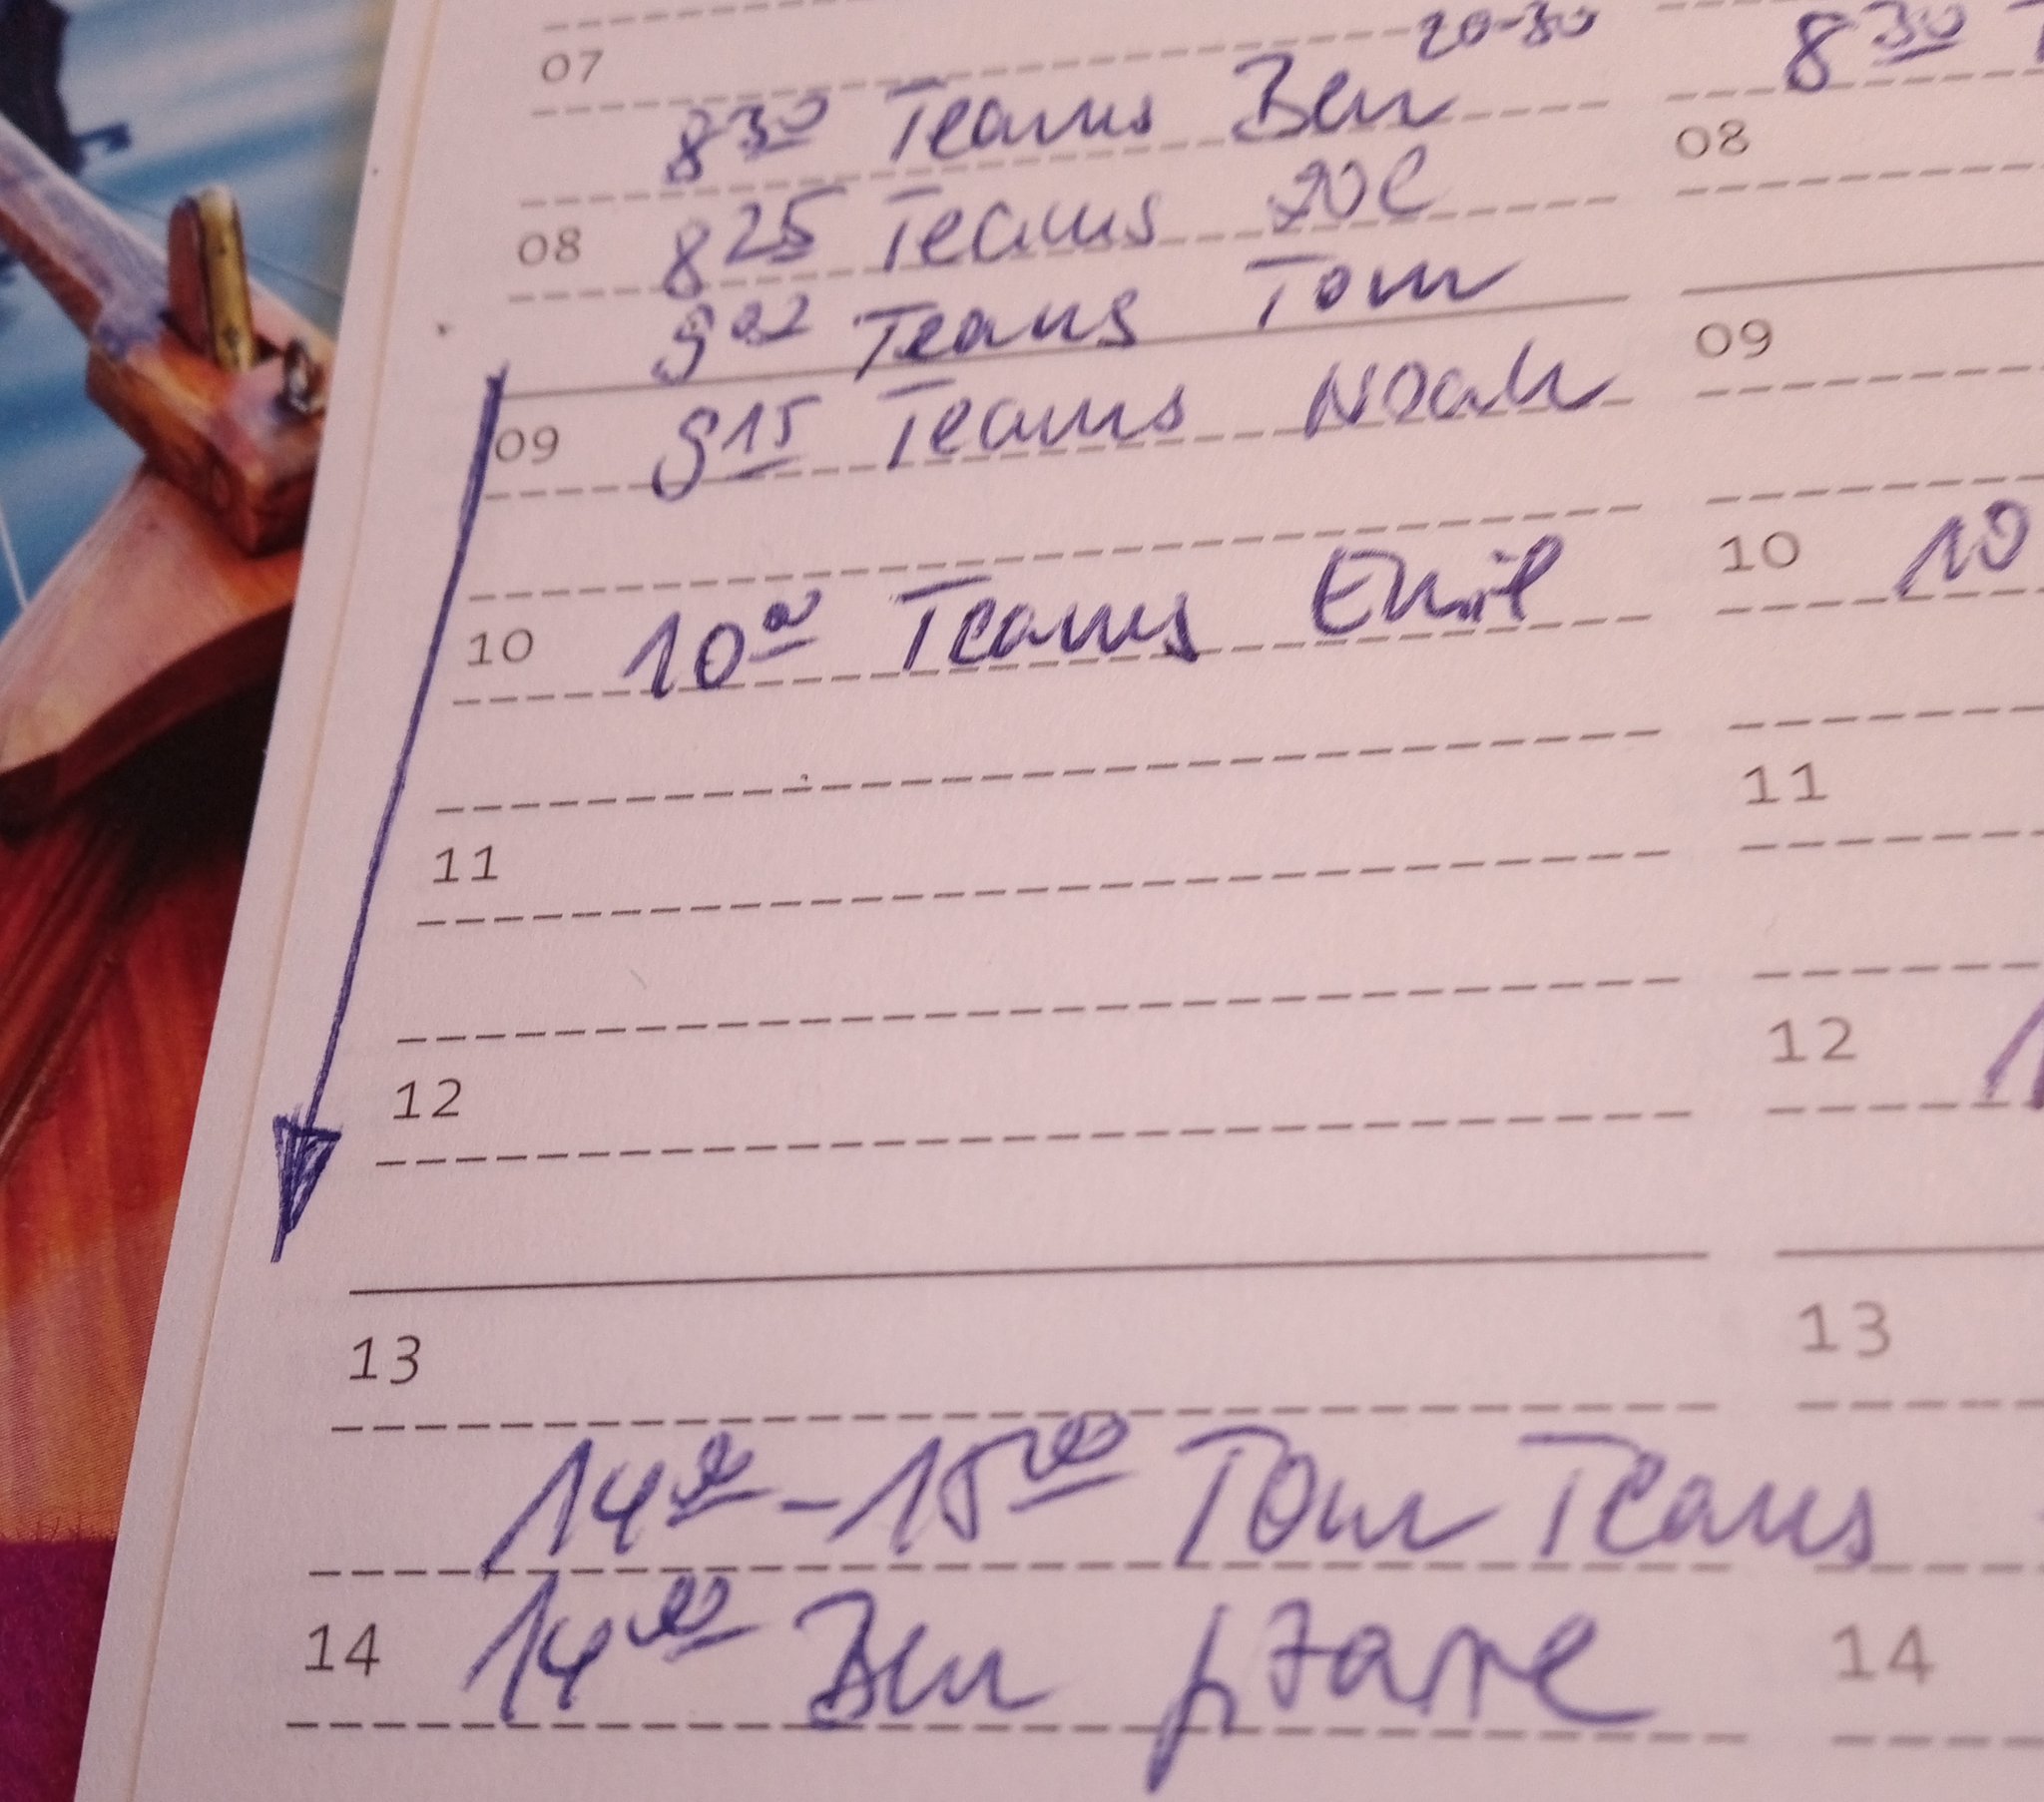 07
20-30
8 30 Teams Ben
08 8 25 Teams Zoe
9 02 Teams Tom
09 9 15 Teams Noah
10 10 00 Teams Emil
11
12
13
14 00 - 15 00 Tom Teams
14 14 00 Ben
8 30
08
09
10 10
11
12 1
13
14